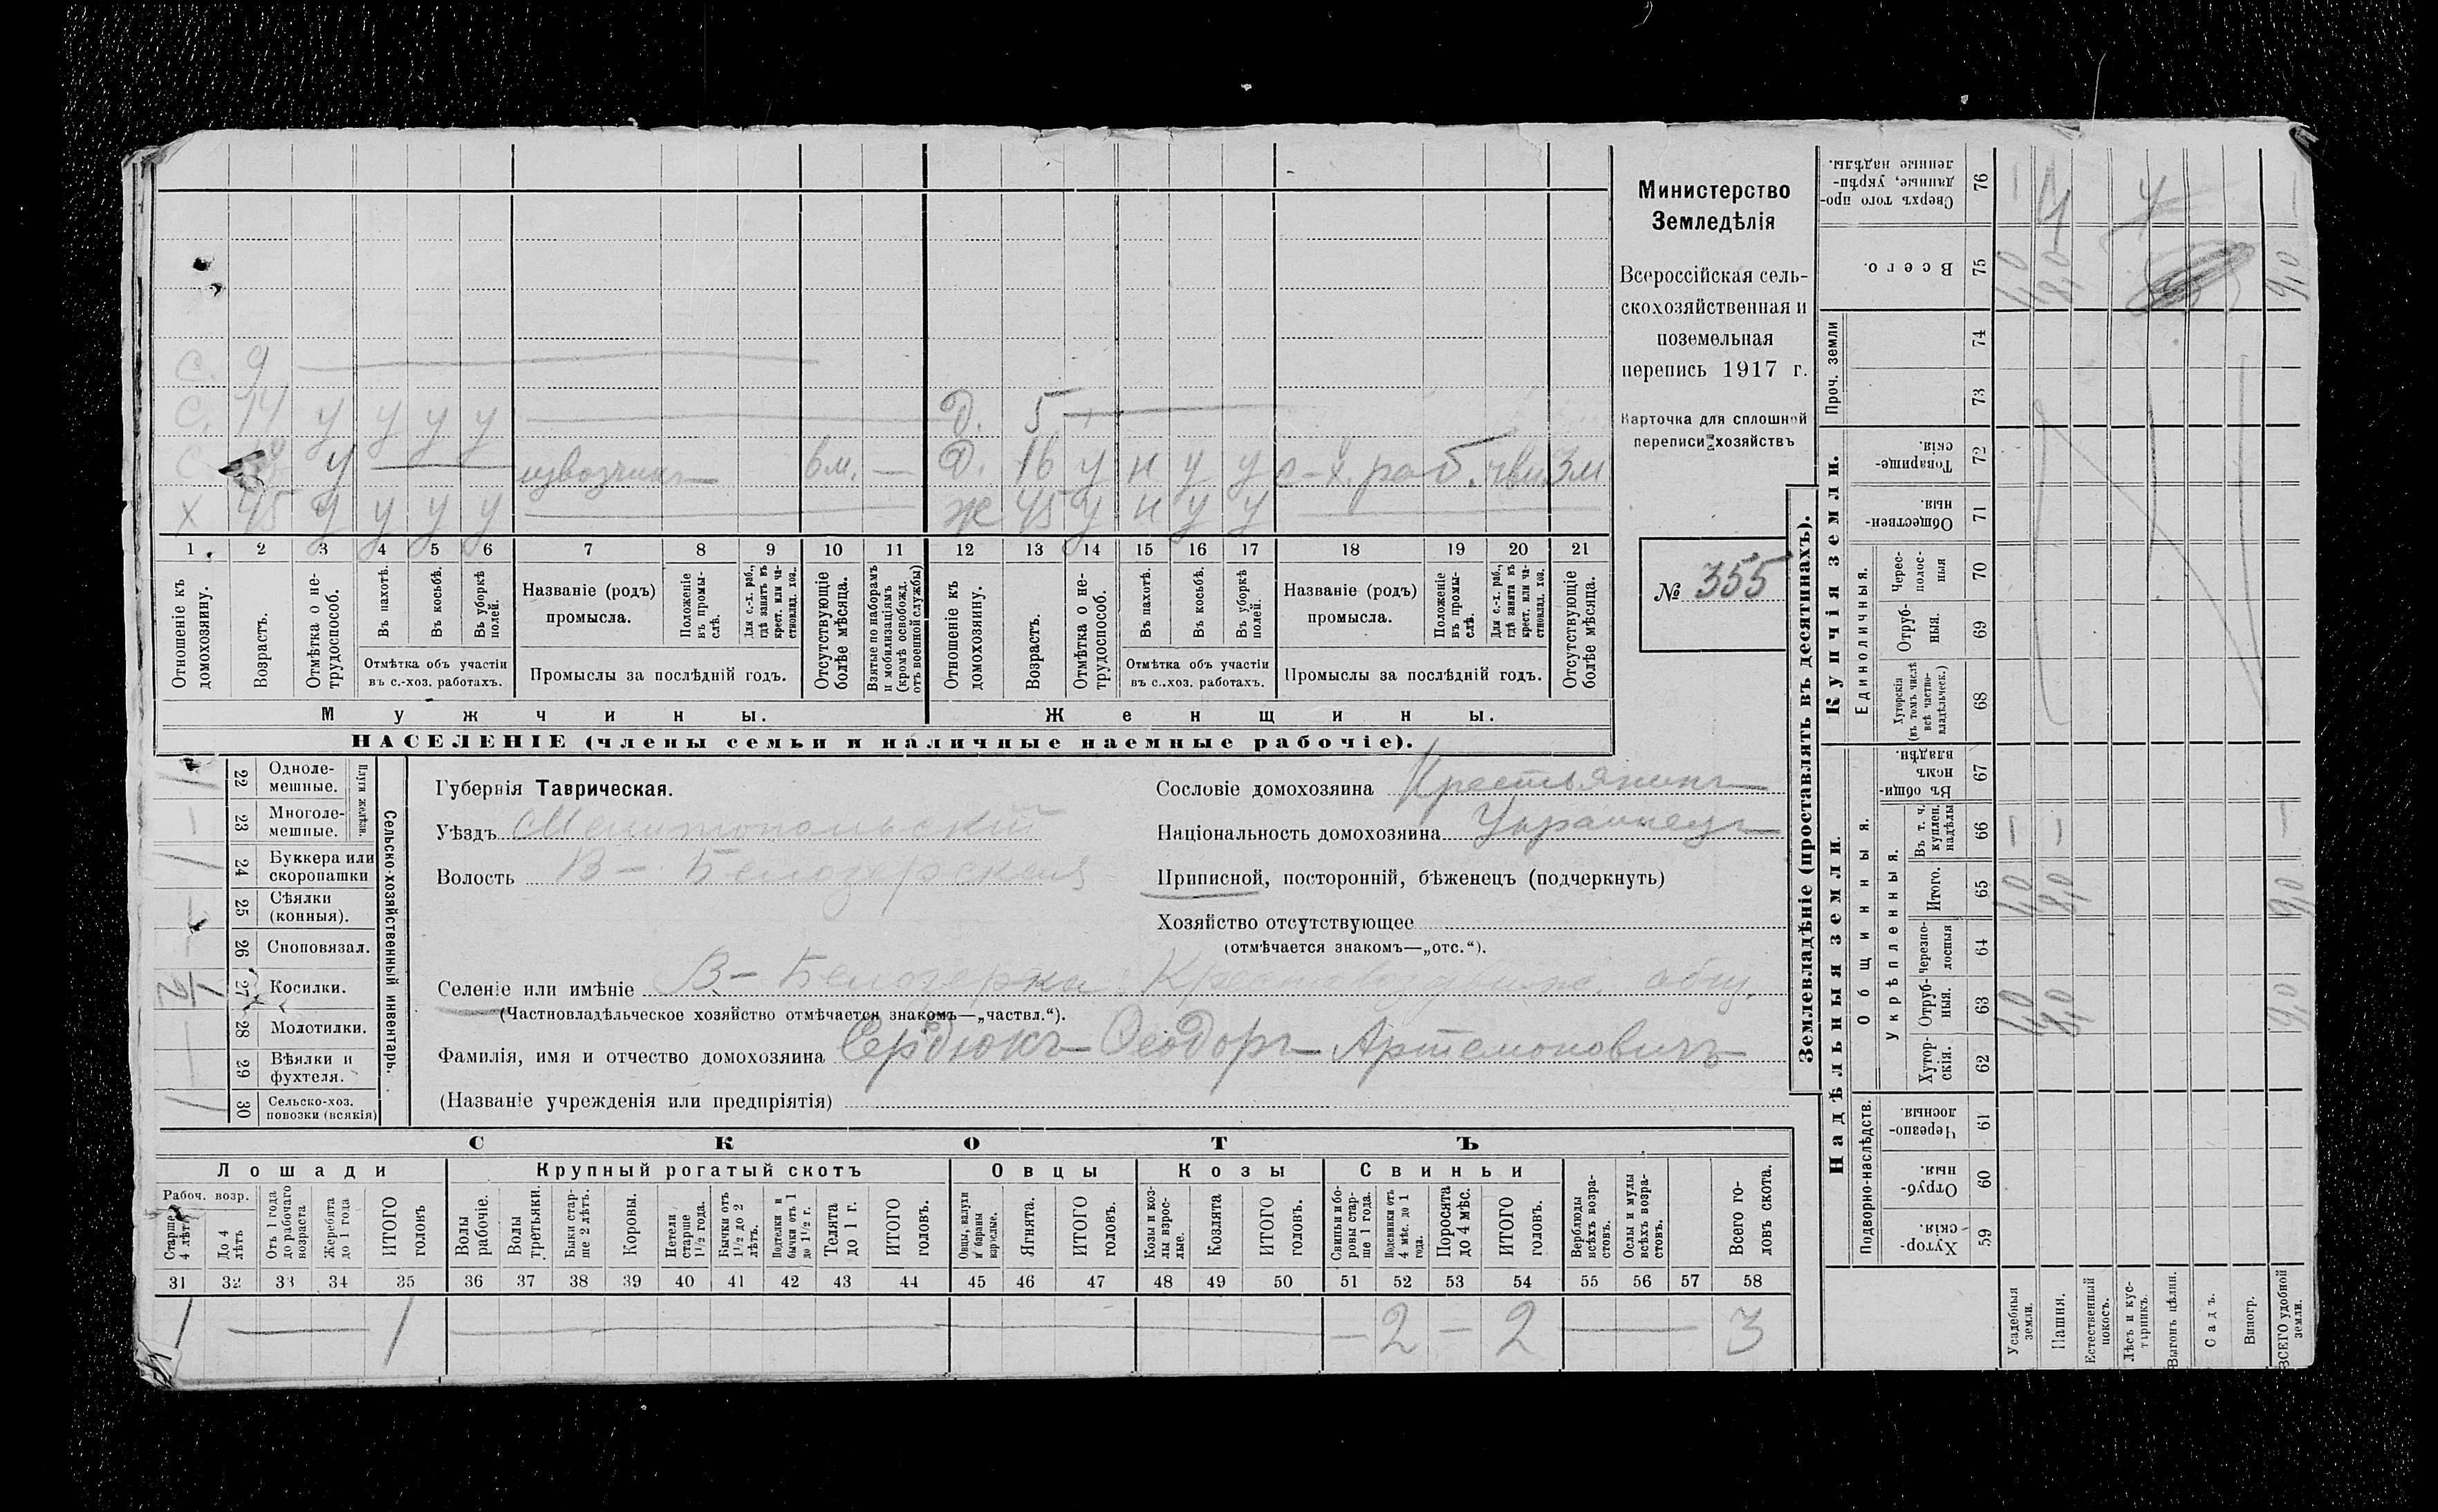 С. 9
С. 14 у у у у
Д. 5
С у извозчикъ 6 м. —
Д. 16 у н у у с-х. раб. 3 м
Х 45 у у у у
Ж 45 у н у у
1 2 3 4 5 6 7 8 9 10 11 12 13 14 15 16 17 18 19 20 21
Отношеніе къ домохозяину.
Возрастъ.
Отмѣтка о нетрудоспособ.
Въ пахотѣ.
Въ косьбѣ.
Въ уборкѣ полей.
Отмѣтка объ участіи въ с.-хоз. работахъ.
Названіе (родъ) промысла.
Положеніе въ промыслѣ.
Для с.-х. раб., гдѣ занятъ въ крест. или частновлад. хоз.
Промыслы за послѣдній годъ.
Отсутствующіе болѣе мѣсяца.
Взятые по наборамъ и мобилизаціямъ (кромѣ освобожд. отъ военной службы)
Отношеніе къ домохозяину.
Возрастъ.
Отмѣтка о нетрудоспособ.
Въ пахотѣ.
Въ косьбѣ.
Въ уборкѣ полей.
Отмѣтка объ участіи въ с..хоз. работахъ.
Названіе (родъ) промысла.
Положеніе въ промыслѣ.
Для с.-х. раб., гдѣ занята въ крест. или частновлад. хоз.
Промыслы за послѣдній годъ.
Отсутствующіе болѣе мѣсяца.
Мужчины.
Женщины.
НАСЕЛЕНІЕ (члены семьи и наличные наемные рабочіе).
Министерство
Земледѣлія
Всероссійская сель-
скохозяйственная и
поземельная
перепись 1917 г.
Карточка для сплошной
переписи хозяйствъ
№ 355
Сельско-хозяйственный инвентарь.
Плуги желѣзн.
22 Одноле-
мешные.
1
23 Многоле-
мешные.
—
24 Буккера или
скоропашки
1
25 Сѣялки
(конныя).
—
26 Сноповязал.
—
27 Косилки.
1/2
28 Молотилки.
—
29 Вѣялки и
фухтеля.
—
30 Сельско-хоз.
повозки (всякія)
1
Губернія Таврическая.
Уѣздъ Мелитопольскій
Волость В-Белозерская
Сословіе домохозяина Крестьянинъ
Національность домохозяина Украинецъ
Приписной, посторонній, бѣженецъ (подчеркнуть)
Хозяйство отсутствующее
(отмѣчается знакомъ—„отс.“).
Селеніе или имѣніе В-Белозерка общ.
(Частновладѣльческое хозяйство отмѣчается знакомъ—„частвл.“).
Фамилія, имя и отчество домохозяина Сердюкъ Ѳеодоръ Артемоновичъ
(Названіе учрежденія или предпріятія)
СКОТЪ
Лошади
Крупный рогатый скотъ
Овцы
Козы
Свиньи
Рабоч. возр.
Старше 4 лѣтъ
До 4 лѣтъ
Отъ 1 года до рабочаго возраста
Жеребята до 1 года
ИТОГО головъ
Волы рабочіе.
Волы третьяки.
Быки старше 2 лѣтъ.
Коровы.
Нетели старше 1½ года.
Бычки отъ 1½ до 2 лѣтъ.
Подтелки и бычки отъ 1 до 1½ г.
Телята до 1 г.
ИТОГО головъ.
Овцы, валухи и бараны взрослые.
Ягнята.
ИТОГО головъ.
Козы и козлы взрослые.
Козлята
ИТОГО головъ.
Свиньи и боровы старше 1 года.
Подсвинки отъ 4 мѣс. до 1 года.
Поросята до 4 мѣс.
ИТОГО головъ.
Верблюды всѣхъ возрастовъ.
Ослы и мулы всѣхъ возрастовъ.
Всего головъ скота.
31 32 33 34 35 36 37 38 39 40 41 42 43 44 45 46 47 48 49 50 51 52 53 54 55 56 57 58
1 — 1 — — 2 — 2 — 3
Землевладѣніе (проставлять въ десятинахъ).
Купчія земли.
Надѣльныя земли.
Сверхъ того проданные, укрѣпленные надѣлы. 76
Всего. 75
Проч. земли
74
73
Товарищескія. 72
Общественныя. 71
Единоличныя.
Чересполосныя 70
Отрубныя. 69
Хуторскія (въ томъ числѣ всѣ частновладѣльческ.) 68
Въ общинномъ владѣн. 67
Общинныя.
Укрѣпленныя.
Въ т. ч. куплен. надѣлы 66
Итого. 65
Черезполосныя 64
Отрубныя. 63
Хуторскія. 62
Подворно-наслѣдств.
Черезполосныя. 61
Отрубныя. 60
Хуторскія. 59
Усадебныя земли.
Пашня.
Естественный покосъ.
Лѣсъ и кустарникъ.
Выгонъ цѣлин.
Садъ.
Виногр.
ВСЕГО удобной земли.
8,0
9,0
8,0
9,0
8,0
9,0